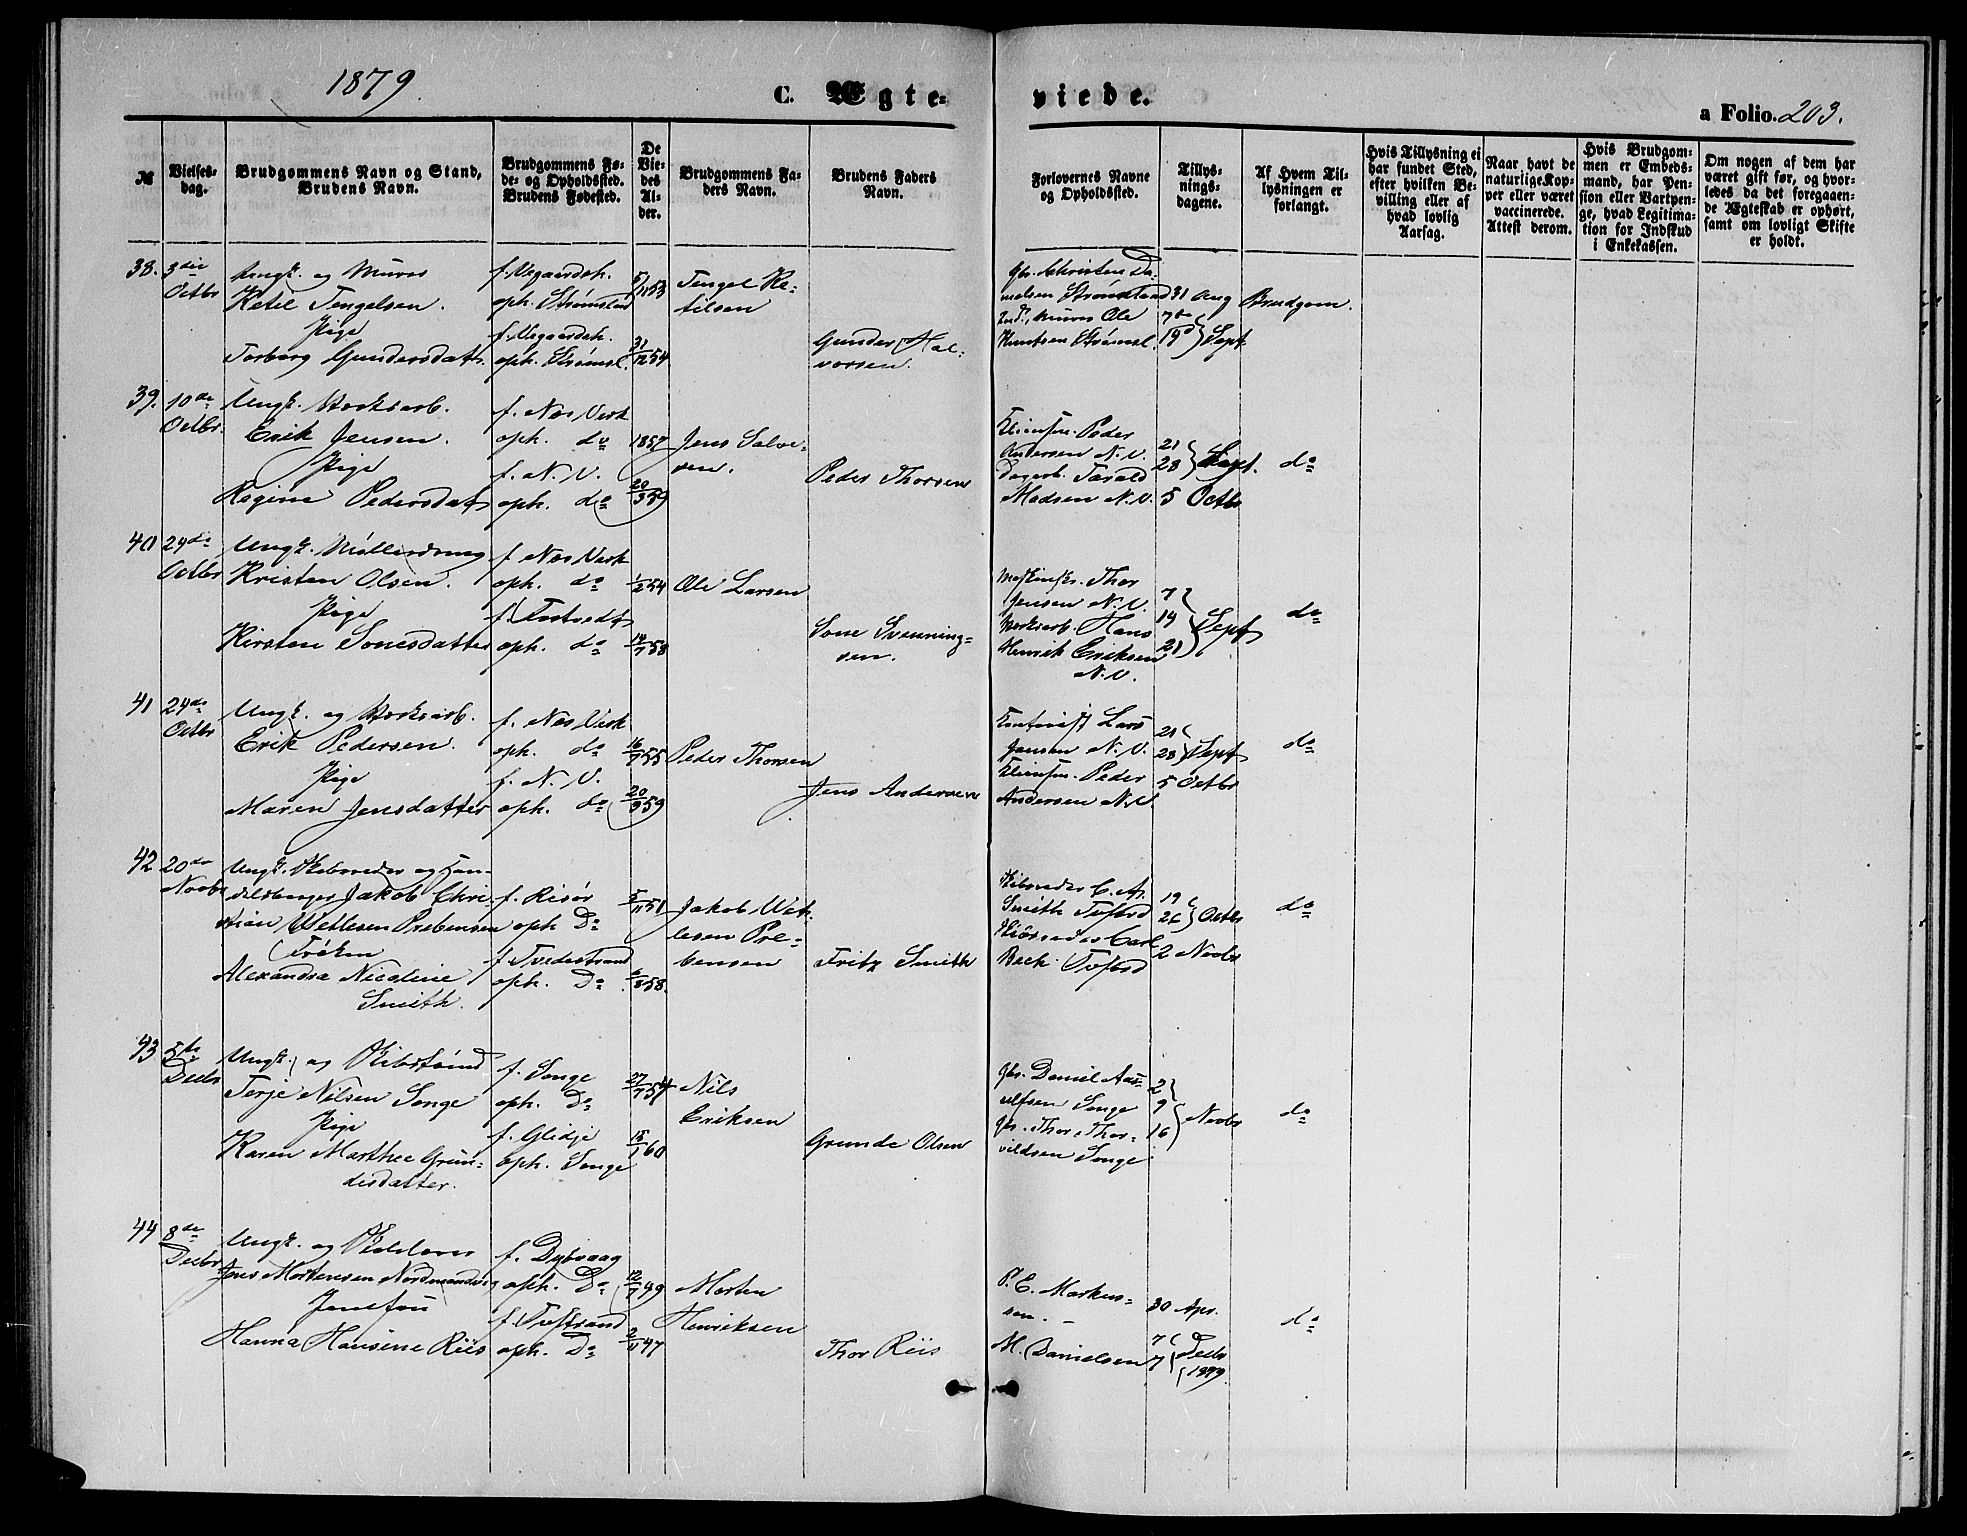 1879.
C. Ægte=
viede.
a Folio. 203.
№
Vielses=
dag.
Brudgommens Navn og Stand,
Brudens Navn.
Brudgommens Fø=
de= og Opholdssted.
Brudens Fødested.
De
Vie=
des
Al=
der.
Brudgommens Fa=
ders Navn.
Brudens Faders
Navn.
Forlovernes Navne
og Opholdssted.
Tillys=
nings=
dagene.
Af Hvem Til=
lysningen er
forlangt.
Hvis Tillysning ei
har fundet Sted,
efter hvilken Be=
villing eller af
hvad lovlig
Aarsag.
Naar havt de
naturlige Kop=
per eller været
vaccinerede.
Attest derom.
Hvis Brudgom=
men er Embeds=
mand, har Pen=
sion eller Vartpen=
ge, hvad Legitima=
tion for Indskud
i Enkekassen.
Om nogen af dem har
været gift før, og hvor=
ledes da det foregaaen=
de Ægteskab er ophørt,
samt om lovligt Skifte
er holdt.
38. 3die Octbr
Ungk. og Murer
Ketil Tengelsen.
Pige
Torborg Gundersdatr
f. Vegaardsh.
oph. Strømsland
f. Vegaardsh.
oph. Strømsl.
5/11 53
31/12 54
Tengel Ke=
tilsen
Gunder Hal=
vorsen.
Gbr. Christen Da=
nielsen Strømsland
Ind., Murer Ole
Knutsen Strømsl.
31 Aug
7de
19d } Sept
Brudgom.
39. 10de Octbr.
Ungk. Verksarb.
Erik Jensen.
Pige
Regine Pedersdatr
f. Nes Verk
oph. do
f. N. V.
oph. do
1857
20/3 59
Jens Salve=
sen.
Peder Thorsen
Peder
Andersen N. V.
Dagarb. Tarald
Madsen N. V.
21
28 } Sept.
5 Octbr
do
40 24de Octbr
Ungk. Møllerdreng
Kristen Olsen.
Pige
Kirsten Sonesdatter
f. Nes Verk
oph. do
f. Tostvedt
oph. do
1/2 54
14/7 58
Ole Larsen
Sone Svenning=
sen.
Thor
Jensen N. V.
Verksarb. Hans
Henrik Eriksen
N. V.
7
14
21 } Sept
do
41 24de Octbr
Ungk. og Verksarb.
Erik Pedersen.
Pige
Maren Jensdatter
f. Nes Verk
oph. do
f. N. V.
oph. do
16/7 55
20/9 59
Peder Thorsen
Jens Andersen
Lars
Jensen N. V.
Peder
Andersen N. V.
21
28 } Sept
5 Octbr
do
42 20de Novbr
Ungk. Skibsreder og Han=
delsborger Jakob Chri=
stian Wetlesen Prebensen
Frøken
Alexandra Nicoline
Smith.
f. Risør
oph Do
f. Tvedestrand
oph. Do
5/11 51
6/8 58.
Jakob Wet=
lesen Pre=
bensen
Fritz Smith
Skibsreder C. A.
Smith Tvstrd
Skibsreder Carl
Bech Tvstrd
19
26 } Octbr
2 Novbr
do
43 5te Decbr
Ungk. og Skibstømmd
Terje Nilsen Songe
Pige
Karen Marthee Grun=
desdatter.
f. Songe
oph. Do
f. Glidje
oph. Songe
27/7 54
15/1 60
Nils
Eriksen
Grunde Olsen
Gbr. Daniel Aas=
ulfsen Songe
Gbr. Thor Thor=
vildsen Songe
2
9
16 } Novbr
do
44 8de Decbr
Ungk. og Skolelærer
Jens Mortensen Nordmandvig
Jomfru
Hanna Hansine Riis
f. Dybvaag
oph. Do
f. Tvstrand
oph. Do
12/7 49
2/11 47
Morten
Henriksen
Thor Riis
P. E. Markus=
sen.
M. Danielsen
30 Apr.
7
7 } Decbr
1879.
do